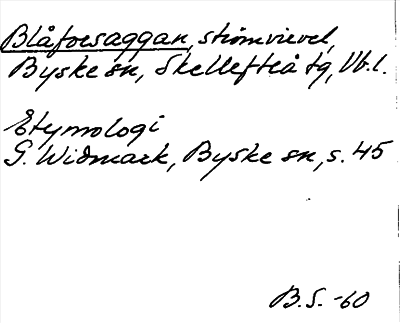 Blåforsaggan, strömvirvel,
Byske sn, Skellefteå tg, Vb. l.
Etymologi
G. Widmark, Byske sn, s. 45
B.S. -60